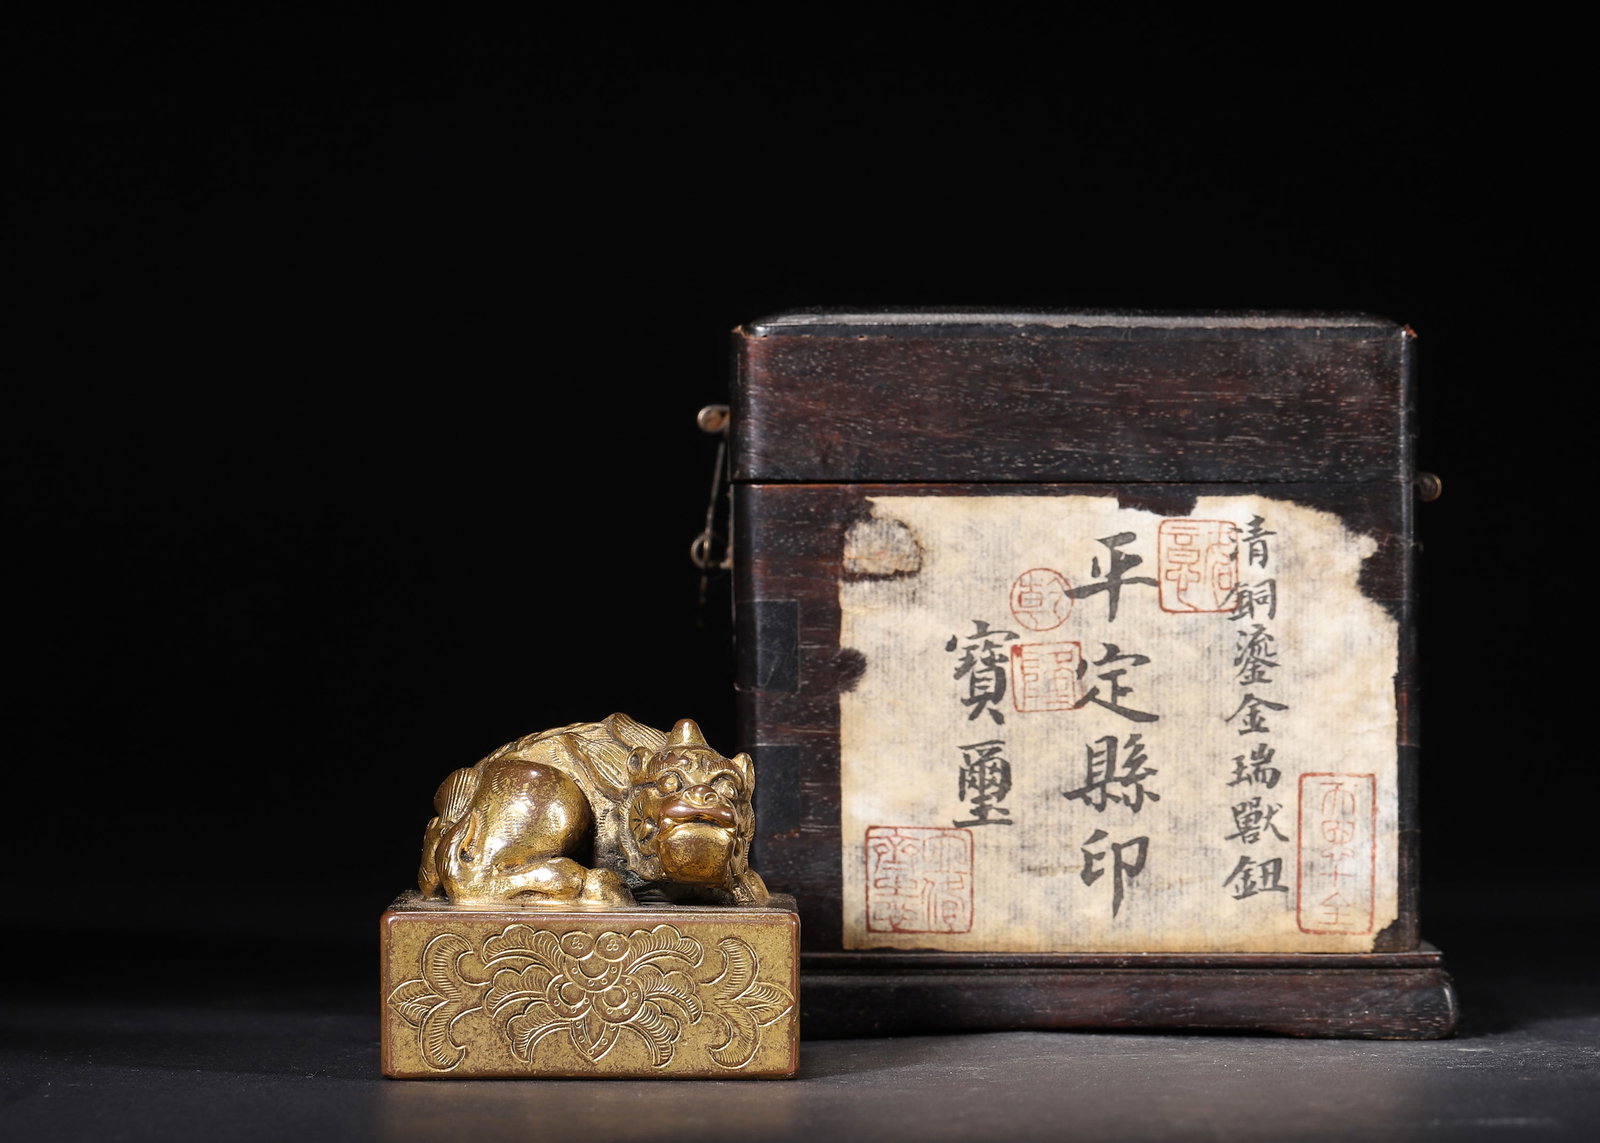 清銅鎏金瑞獸鈕
平定縣印
寶璽
乾
隆